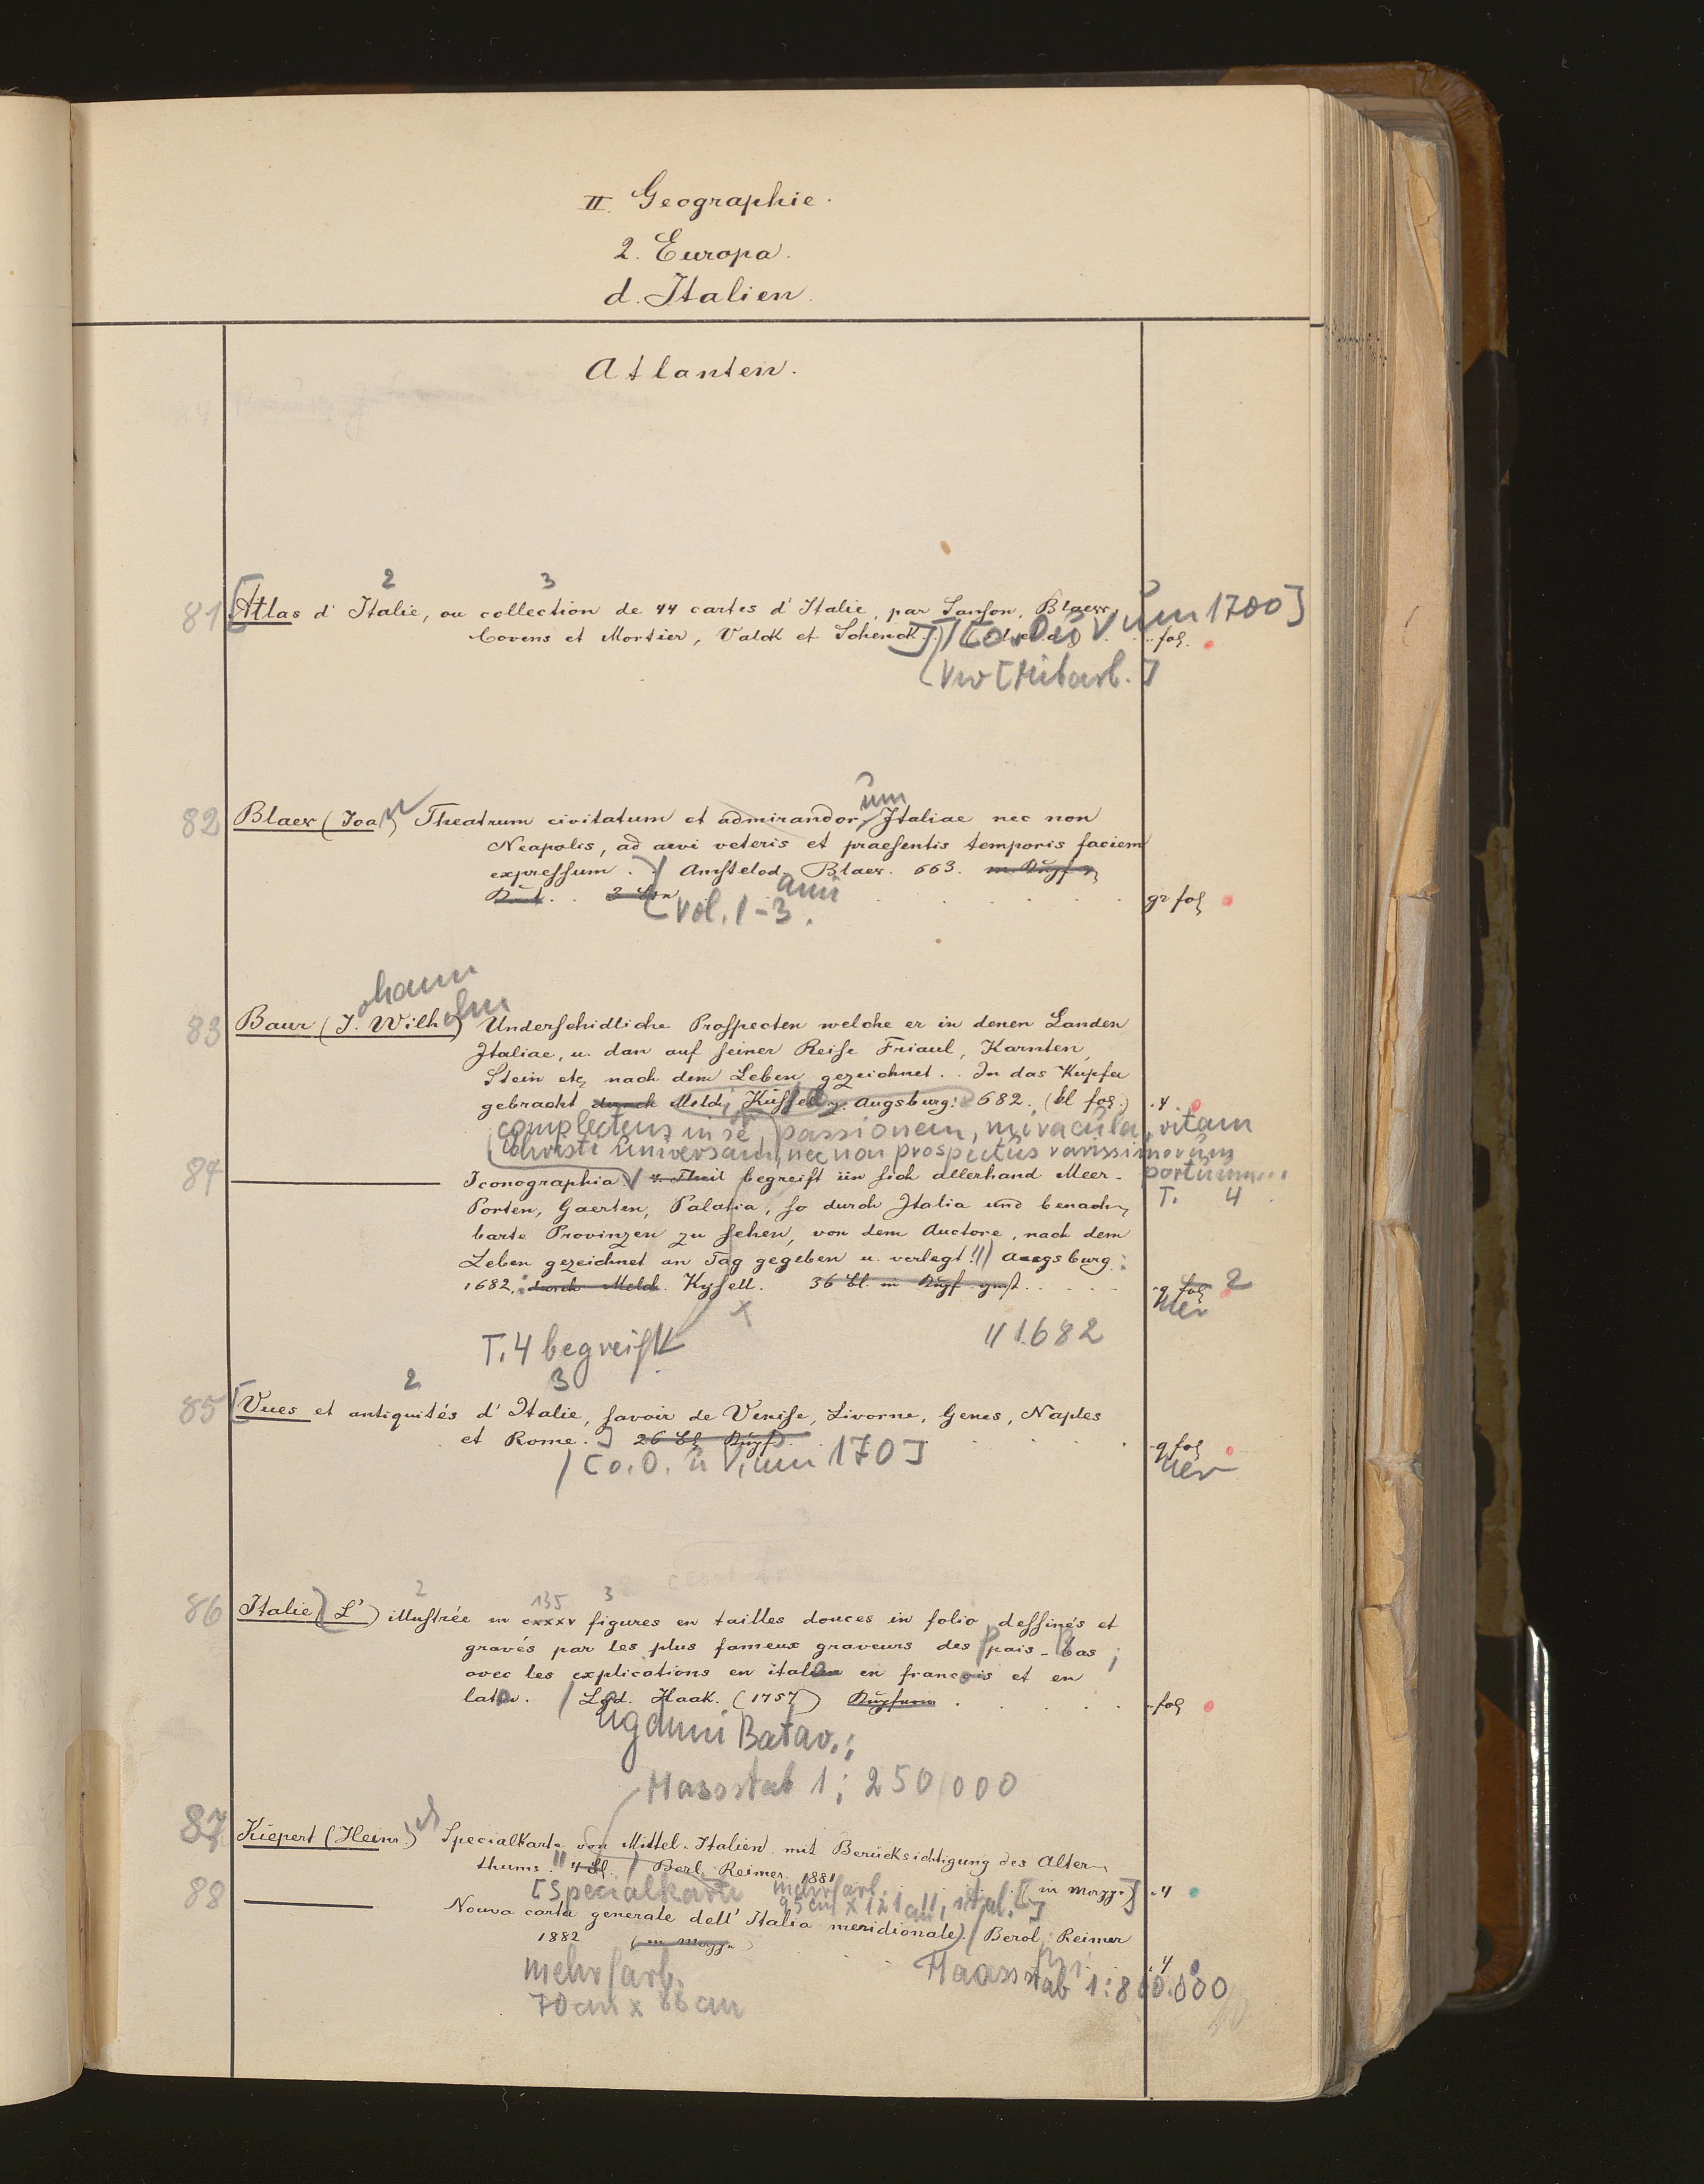 II. Geographie.
2. Europa.
d. Italien.
Atlanten.
2 3
81 [Atlas d' Italie, ou collection de 44 cartes d' Italie, par Sanson, Blaew, um 1700]
Covens et Mortier, Valck et Schenck.] fol.
Vw [Mitarb.]
um
82 Blaew (Joa) Theatrum civitatum et admirandor Italiae nec non
Neapolis, ad aevi veteris et praesentis temporis faciem
expressum. Amstelod. Blaew. 663. m. Kupf
2 Bde gr fol
Vol. 1-3.
ohann
elm
83 Baur (J. Wilh) Underschidliche Prospecten welche er in denen Landen
Italiae, u. dan auf seiner Reise Friaul, Karnten,
Stein etc nach dem Leben gezeichnet. In das Kupfer
gebracht durch Melch. Küssell. Augsburg: 682. (bl fol.) 4
complectens in se, passionem, miracula, vitam
Christi universam, nec non prospectus rarissimorum
portuum...
84 Iconographia 4. Theil begreift iin sich allerhand Meer-
T. 4
Porten, Gaerten, Palatia, so durch Italia und benach-
barte Provinzen zu sehen, von dem Auctore, nach dem
Leben gezeichnet an Tag gegeben u. verlegt!// Augsburg:
1682. durch Melch. Kysell. 36 bl. in Kupf q fol 2
T. 4 begreift x // 1682
2 3
85 [Vues et antiquités d' Italie, savoir de Venise, Livorne, Genes, Naples
et Rome.] 26 bl Kupf. q fol
/ [o. O. u V, um 170]
2 135 3
86 Italie (L') illustrée en cxxxv figures en tailles douces in folio dessinés et
gravés par les plus fameux graveurs des pais-bas;
avec les explications en italien en francois et en
latin. / Lgd. Haak. (1757) Kupfern fol
ugduni Batav.;
Massstab 1:250/000
87 Kiepert (Heinr.) Specialkarte von Mittel-Italien mit Berücksichtigung des Alter-
thums. 4 Bl. / Berl. Reimer. 1881
[Specialkarte mehrfarb. [in Mappe] 4
95 cm x 121 cm, ital.]
88 Nouva carta generale dell' Italia meridionale). / Berol. Reimer
1882 (in Mappe) 4
mehrfarb. Maassstab 1:800.000
70 cm x 88 cm